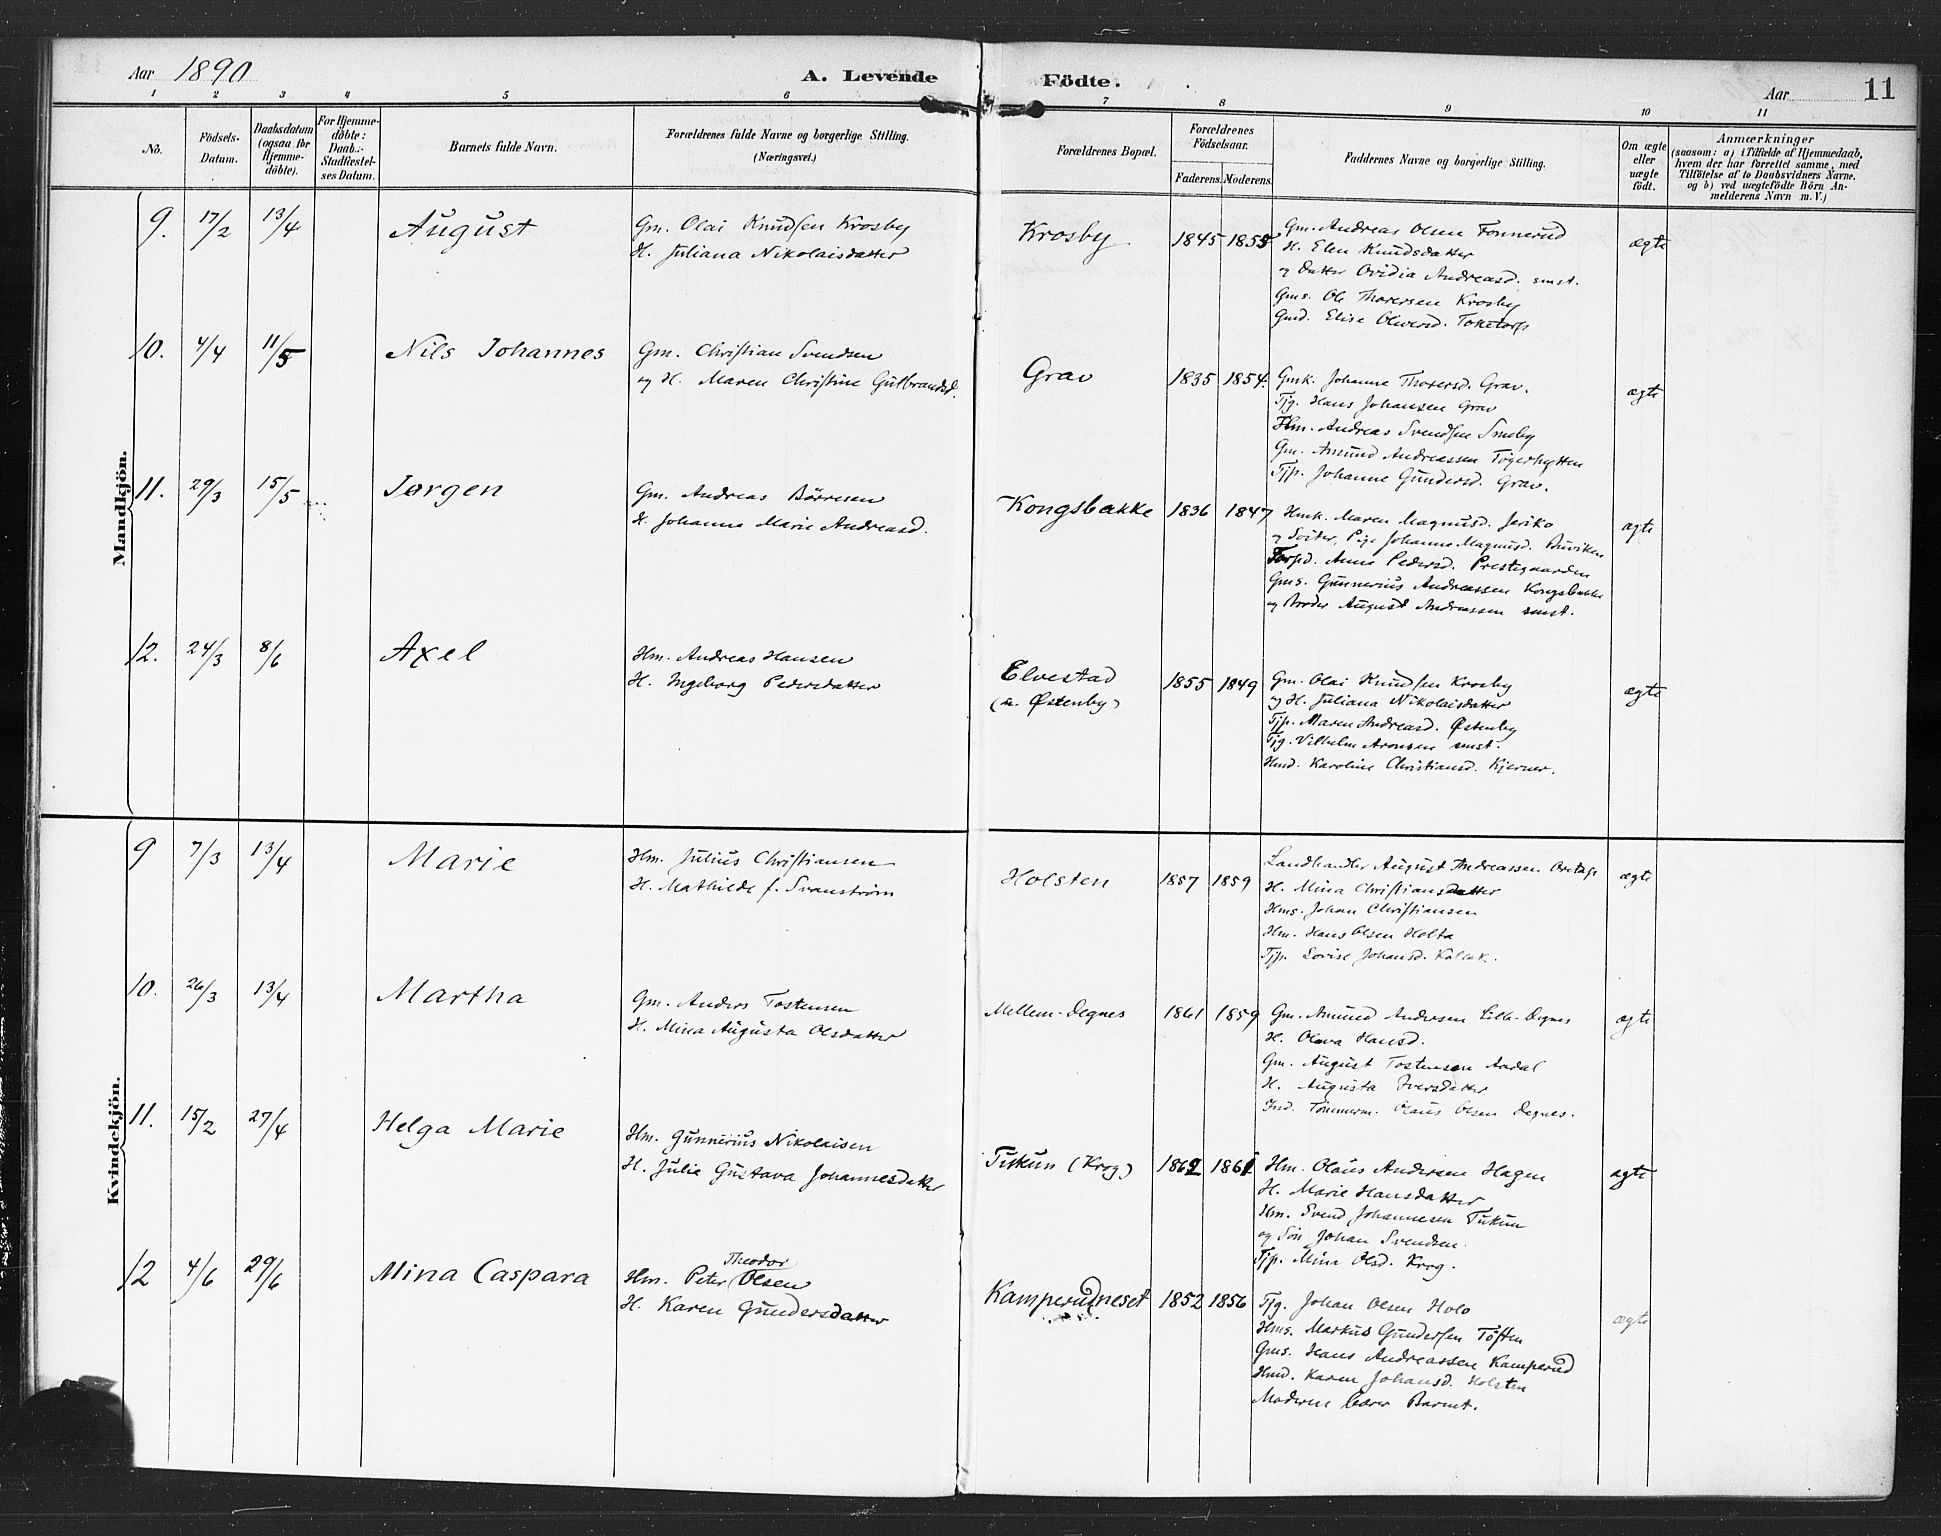 Aar 1890
A. Levende Födte.
Aar 11
1 2 3 4 5 6 7 8 9 10 11
No.
Födsels-
Datum.
Daabsdatum
(ogsaa för
Hjemme-
döbte).
For Hjemme-
döbte:
Daab.:
Stadfæstel-
ses Datum.
Barnets fulde Navn.
Forældrenes fulde Navne og borgerlige Stilling.
(Næringsvei.)
Forældrenes Bopæl.
Forældrenes
Födselsaar.
Faderens. Moderens.
Faddernes Navne og borgerlige Stilling.
Om ægte
eller
uægte
födt.
Anmærkninger
(saasom: a) i Tilfælde af Hjemmedaab,
hvem der har forrettet samme, med
Tilföielse af to Daabsvidners Navne.
og b) ved uægtefödte Börn An-
melderens Navn m. V.)
Mandkjön.
9. 17/2 13/4 August
Gm. Olai Knudsen Krosby
H. Juliana Nikolaisdatter
Krosby 1845 1855
Gm. Andreas Olsen Tonnerud
H. Elen Knudsdatter
og Datter Ovidia Andreasd. smst.
Gms. Ole Thoresen Krosby
Gmd. Elise Oliversd. Toketorp
ægte
10. 4/4 11/5 Nils Johannes
Gm. Christian Svendsen
og H. Maren Christine Gulbrandsd.
Grav 1835 1854.
Gmk. Johanne Thoresd. Grav.
Tjg. Hans Johansen Grav
Hm. Andreas Svendsen Smeby
Gm. Amund Andreassen Tögerhytten
Tjp. Johanne Gundersd. Grav.
ægte
11. 29/3 15/5 Jørgen
Gm. Andreas Börresen
H. Johanne Marie Andreasd.
Kongsbakke 1836 1847
Hmk. Maren Magnusd. Jeriko
og Söster, Pige Johanne Magnusd. Buviken
Anne Pedersd. Prestegaarden
Gms. Gunnerius Andreassen Kongsbakke
og Broder August Andreassen smst.
ægte
12. 24/3 8/6 Axel
Hm. Andreas Hansen
H. Ingeborg Pedersdatter
Elvestad
(u. Østenby)
1855 1849
Gm. Olai Knudsen Krosby
og H. Juliana Nikolaisdatter
Tjp. Maren Andreasd. Østenby
Tjg. Vilhelm Aronsen smst.
Hmd. Karoline Christiansd. Kjerner.
ægte
Kvindekjön.
9 7/3 13/4 Marie
Hm. Julius Christiansen
H. Mathilde f. Svanström
Holsten 1857 1859
Landhandler August Andreassen
H. Mina Christiansdatter
Hms. Johan Christiansen
Hm. Hans Olsen Holta
Tjp. Lovise Johansd. Kollek.
ægte
10. 26/3 13/4 Martha
Gm. Anders Tostensen
H. Mina Augusta Olsdatter
Mellem-Degnes 1861 1859
Gm. Amund Andersen Lille-Degnes
H. Olava Hansd.
Gm. August Tostensen Aadal
H. Augusta Iversdatter
Ind. Tömmerm. Olaus Olsen Degnes.
ægte
11. 15/2 27/4 Helga Marie
Hm. Gunnerius Nikolaisen
H. Julie Gustava Johannesdatter
Tukun (Krog) 1862 1861
Hm. Olaus Andersen Hagen
H. Marie Hansdatter
Hm. Svend Johannesen Tukun
og Sön Johan Svendsen.
Tjp. Mina Olsd. Krog.
ægte
12 4/6 29/6 Mina Caspara
Theodor
Hm. Peter Olsen
H. Karen Gundersdatter
Kamperudneset 1852 1856
Tjg. Johan Olsen Holo
Hms. Markus Gundersen Töften
Gms. Hans Andreassen Kamperud
Hmd. Karen Johansd. Holsten
Moderen bærer Barnet.
ægte